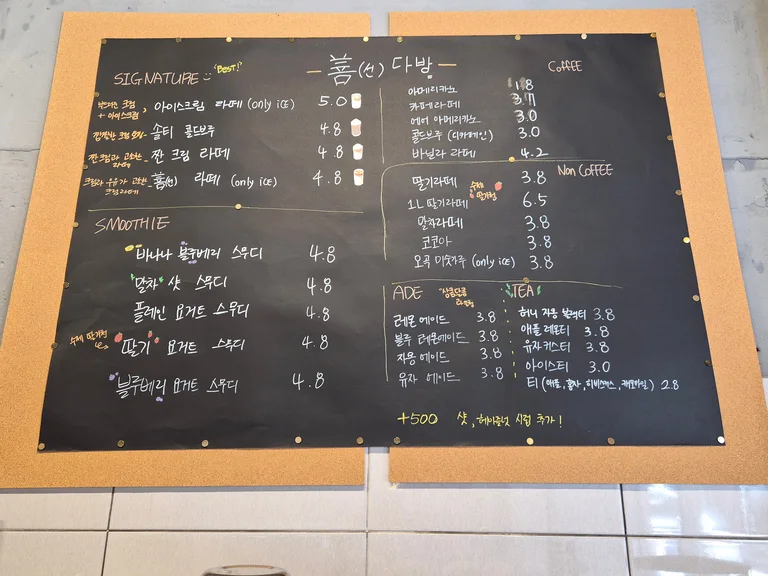 -善(선) 다방-
SIGNATURE "BEST!"
부드러운 크림 + 아이스크림, 아이스크림 라떼 (only ice) 5.0
솔티 콜드브루 4.8
짠 크림과 고소한 라떼 짠 크림 라떼 4.8
크림과 우유가 고소한 크림라떼 善(선) 라떼 (only ice) 4.8
SMOOTHIE
바나나 블루베리 스무디 4.8
말차 샷 스무디 4.8
플레인 요거트 스무디 4.8
수제 딸기청 딸기 요거트 스무디 4.8
블루베리 요거트 스무디 4.8
COFFEE
아메리카노 1.8
카페라떼
에어 아메리카노 3.0
콜드브루 (디카페인) 3.0
바닐라 라떼 4.2
Non COFFEE
딸기라떼 수제 딸기청 3.8
1.L 딸기라떼 6.5
말차라떼 3.8
코코아 3.8
오곡 미숫가루 (only ice) 3.8
ADE 상큼달콤
레몬에이드 3.8
블루 레몬에이드 3.8
자몽에이드 3.8
유자 에이드 3.8
TEA
허니 자몽 블랙티 3.8
애플 레몬티 3.8
유자커스티 3.8
아이스티 3.0
티 (애플, 홍차, 히비스커스, 캐모마일) 2.8
+500 샷, 헤이즐넛 시럽 추가!